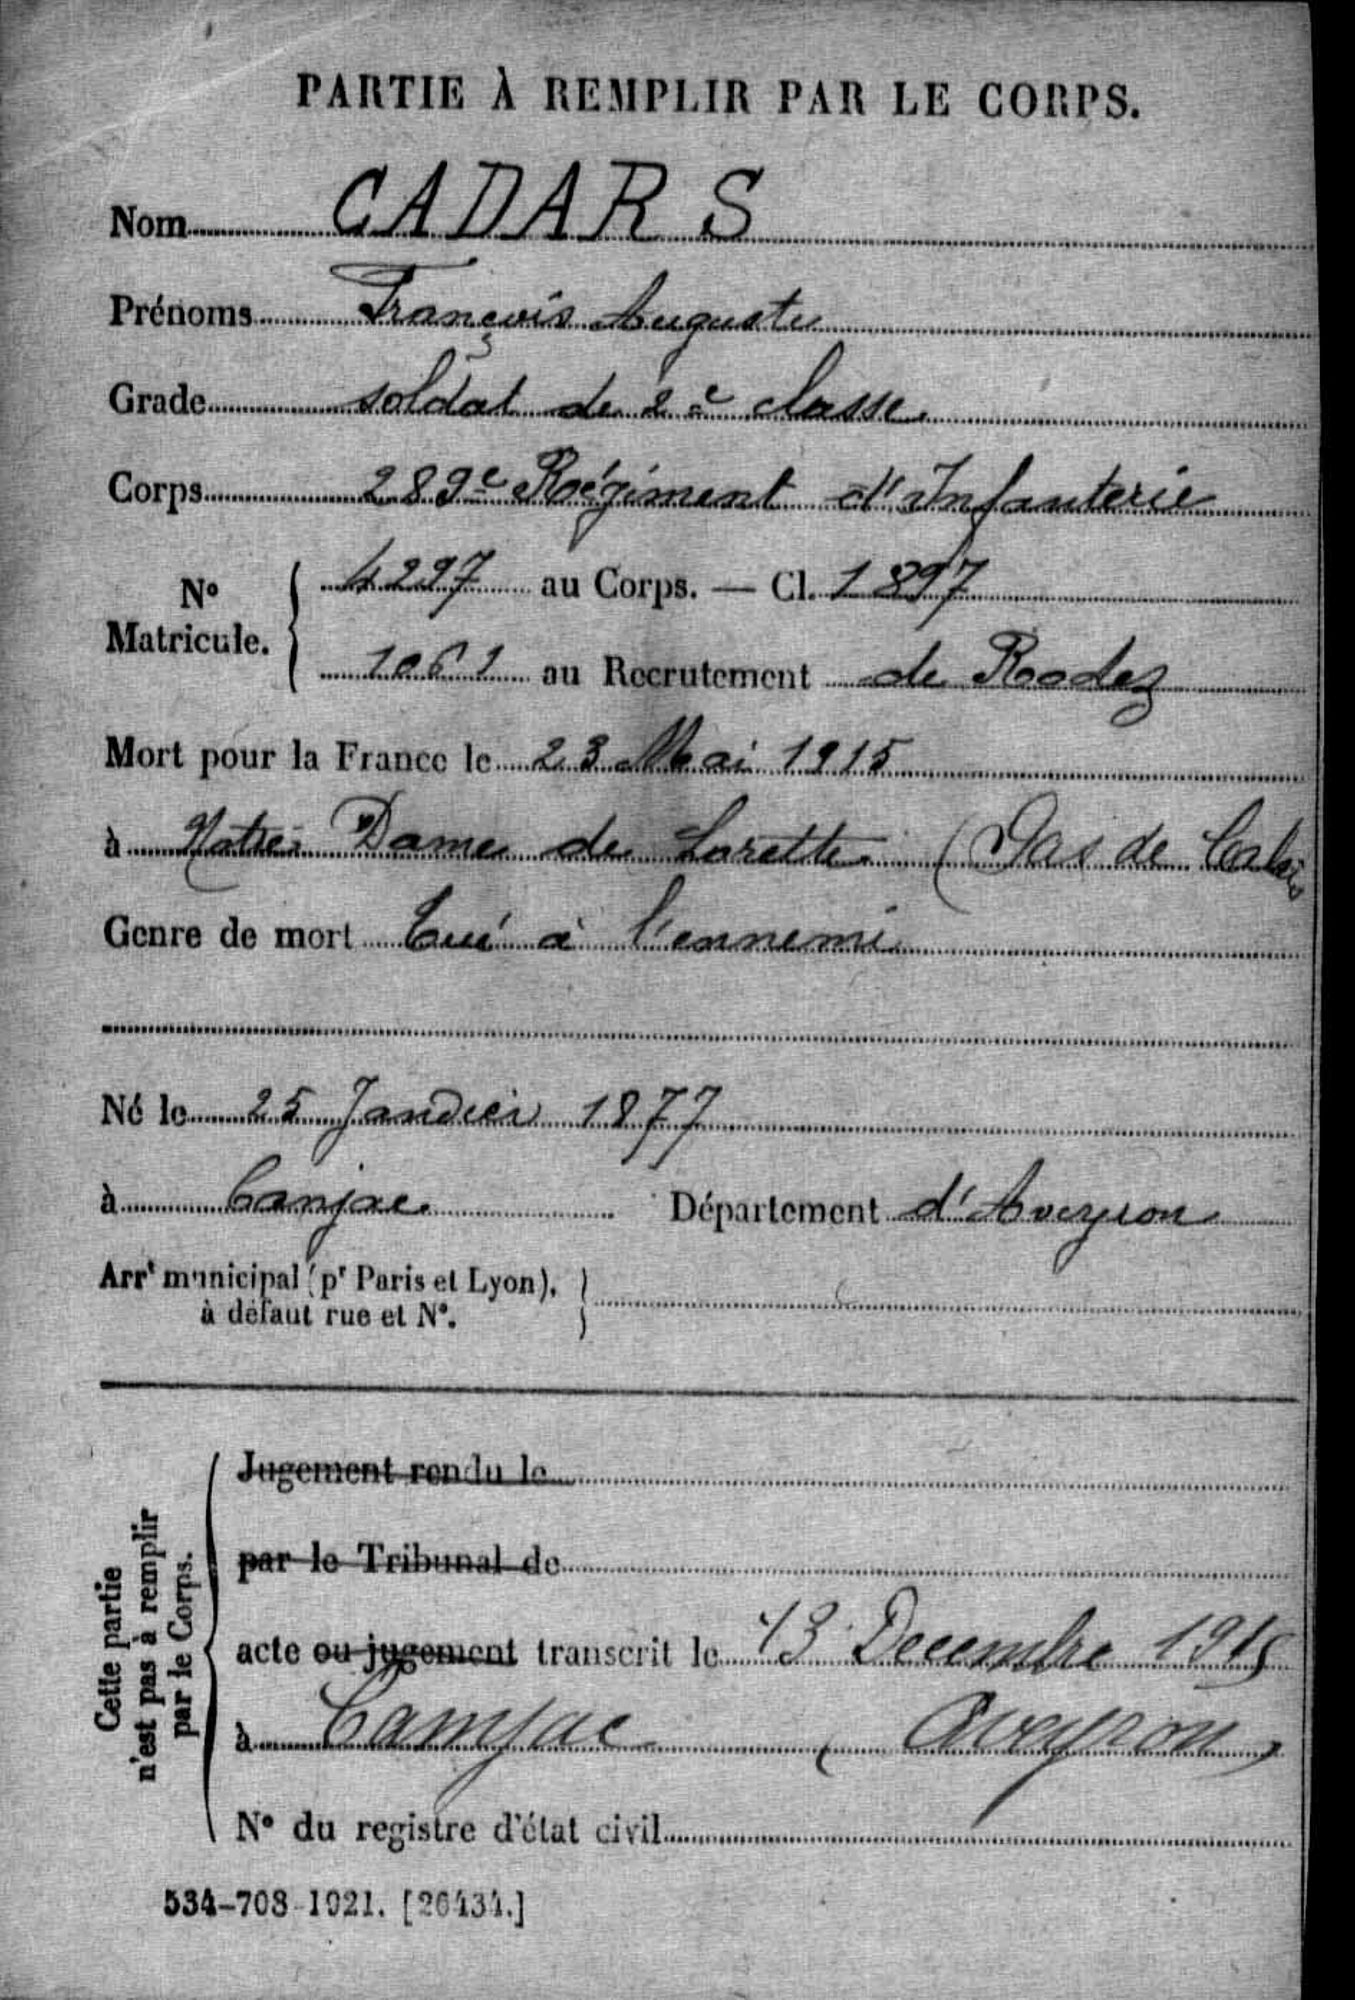 PARTIE À REMPLIR PAR LE CORPS.
Nom CADARS
Prénoms François Auguste
Grade soldat de 2e classe
Corps 289e Régiment d'Infanterie
No Matricule. { 4297 au Corps. — Cl. 1897
1061 au Recrutement de Rodez
Mort pour la France le 23 Mai 1915
à Notre Dame de Lorette (Pas de Calais
Genre de mort Tué à l'ennemi
Né le 25 Janvier 1877
à Camjac Département d'Aveyron
Arrt municipal (pr Paris et Lyon),
à défaut rue et No.
Cette partie
n'est pas à remplir
par le Corps.
Jugement rendu le
par le Tribunal de
acte ou jugement transcrit le 13 Decembre 1915
à Camjac (Aveyron)
No du registre d'état civil
534-708-1921. [26434.]